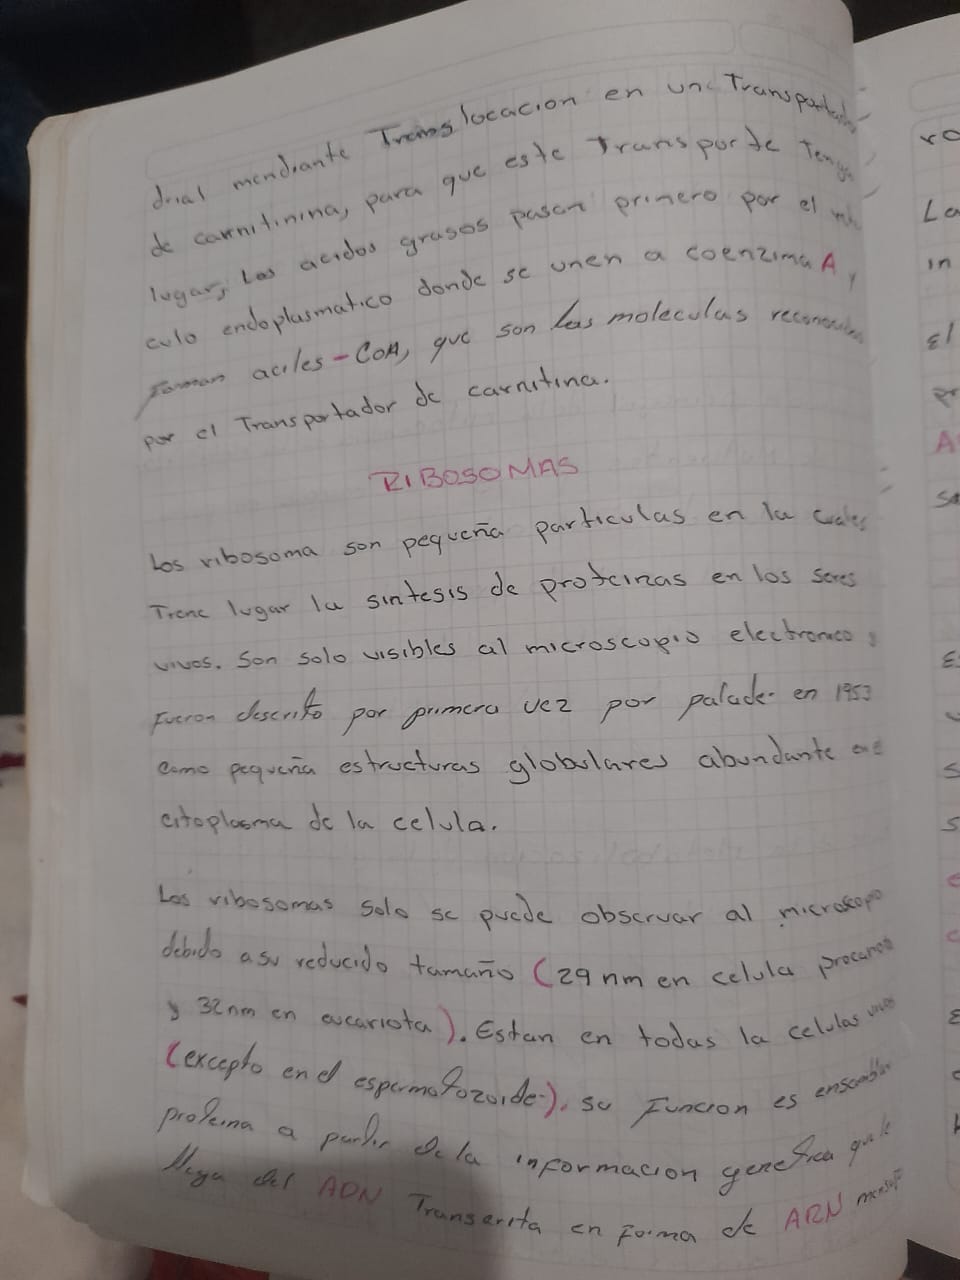 drial mendiante Translocacion en un Transportador
de carnitinina, para que este Transporte Tenga
lugar, Los acidos grasos pasan primero por el
culo endoplasmatico donde se unen a coenzima A,
Forman aciles-CoA, que son las moleculas
por el Transportador de carnitina.
RIBOSOMAS
Los ribosoma son pequeña particulas en la cuales
Tiene lugar la sintesis de proteinas en los seres
vivos. Son solo visibles al microscopio electronico,
Fueron descrito por primera vez por palade en 1953
como pequeña estructuras globulares abundante
citoplasma de la celula.
Los ribosomas solo se puede observar al microscopo
debido a su reducido tamaño (29 nm en celula
y 32nm en eucariota). Estan en todas la celulas vivas
(excepto en el espermatozoide). su Funcion es ensamblar
proteina a partir de la informacion genetica que le
llega del ADN Transcrita en Forma de ARN
ro
La
in
El
A